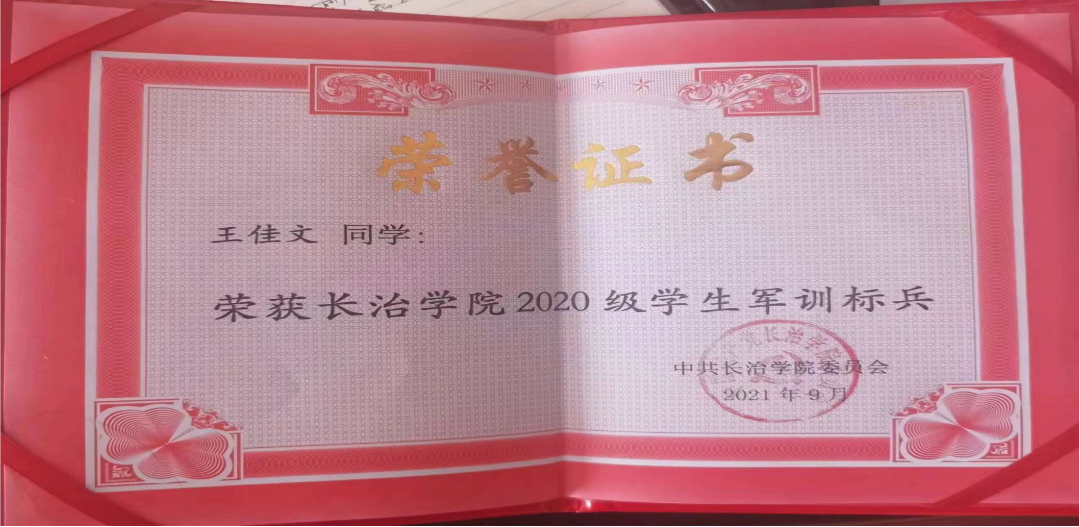 荣誉证书
王佳文 同学:
荣获长治学院2020级学生军训标兵
中共长治学院委员会
2021年9月